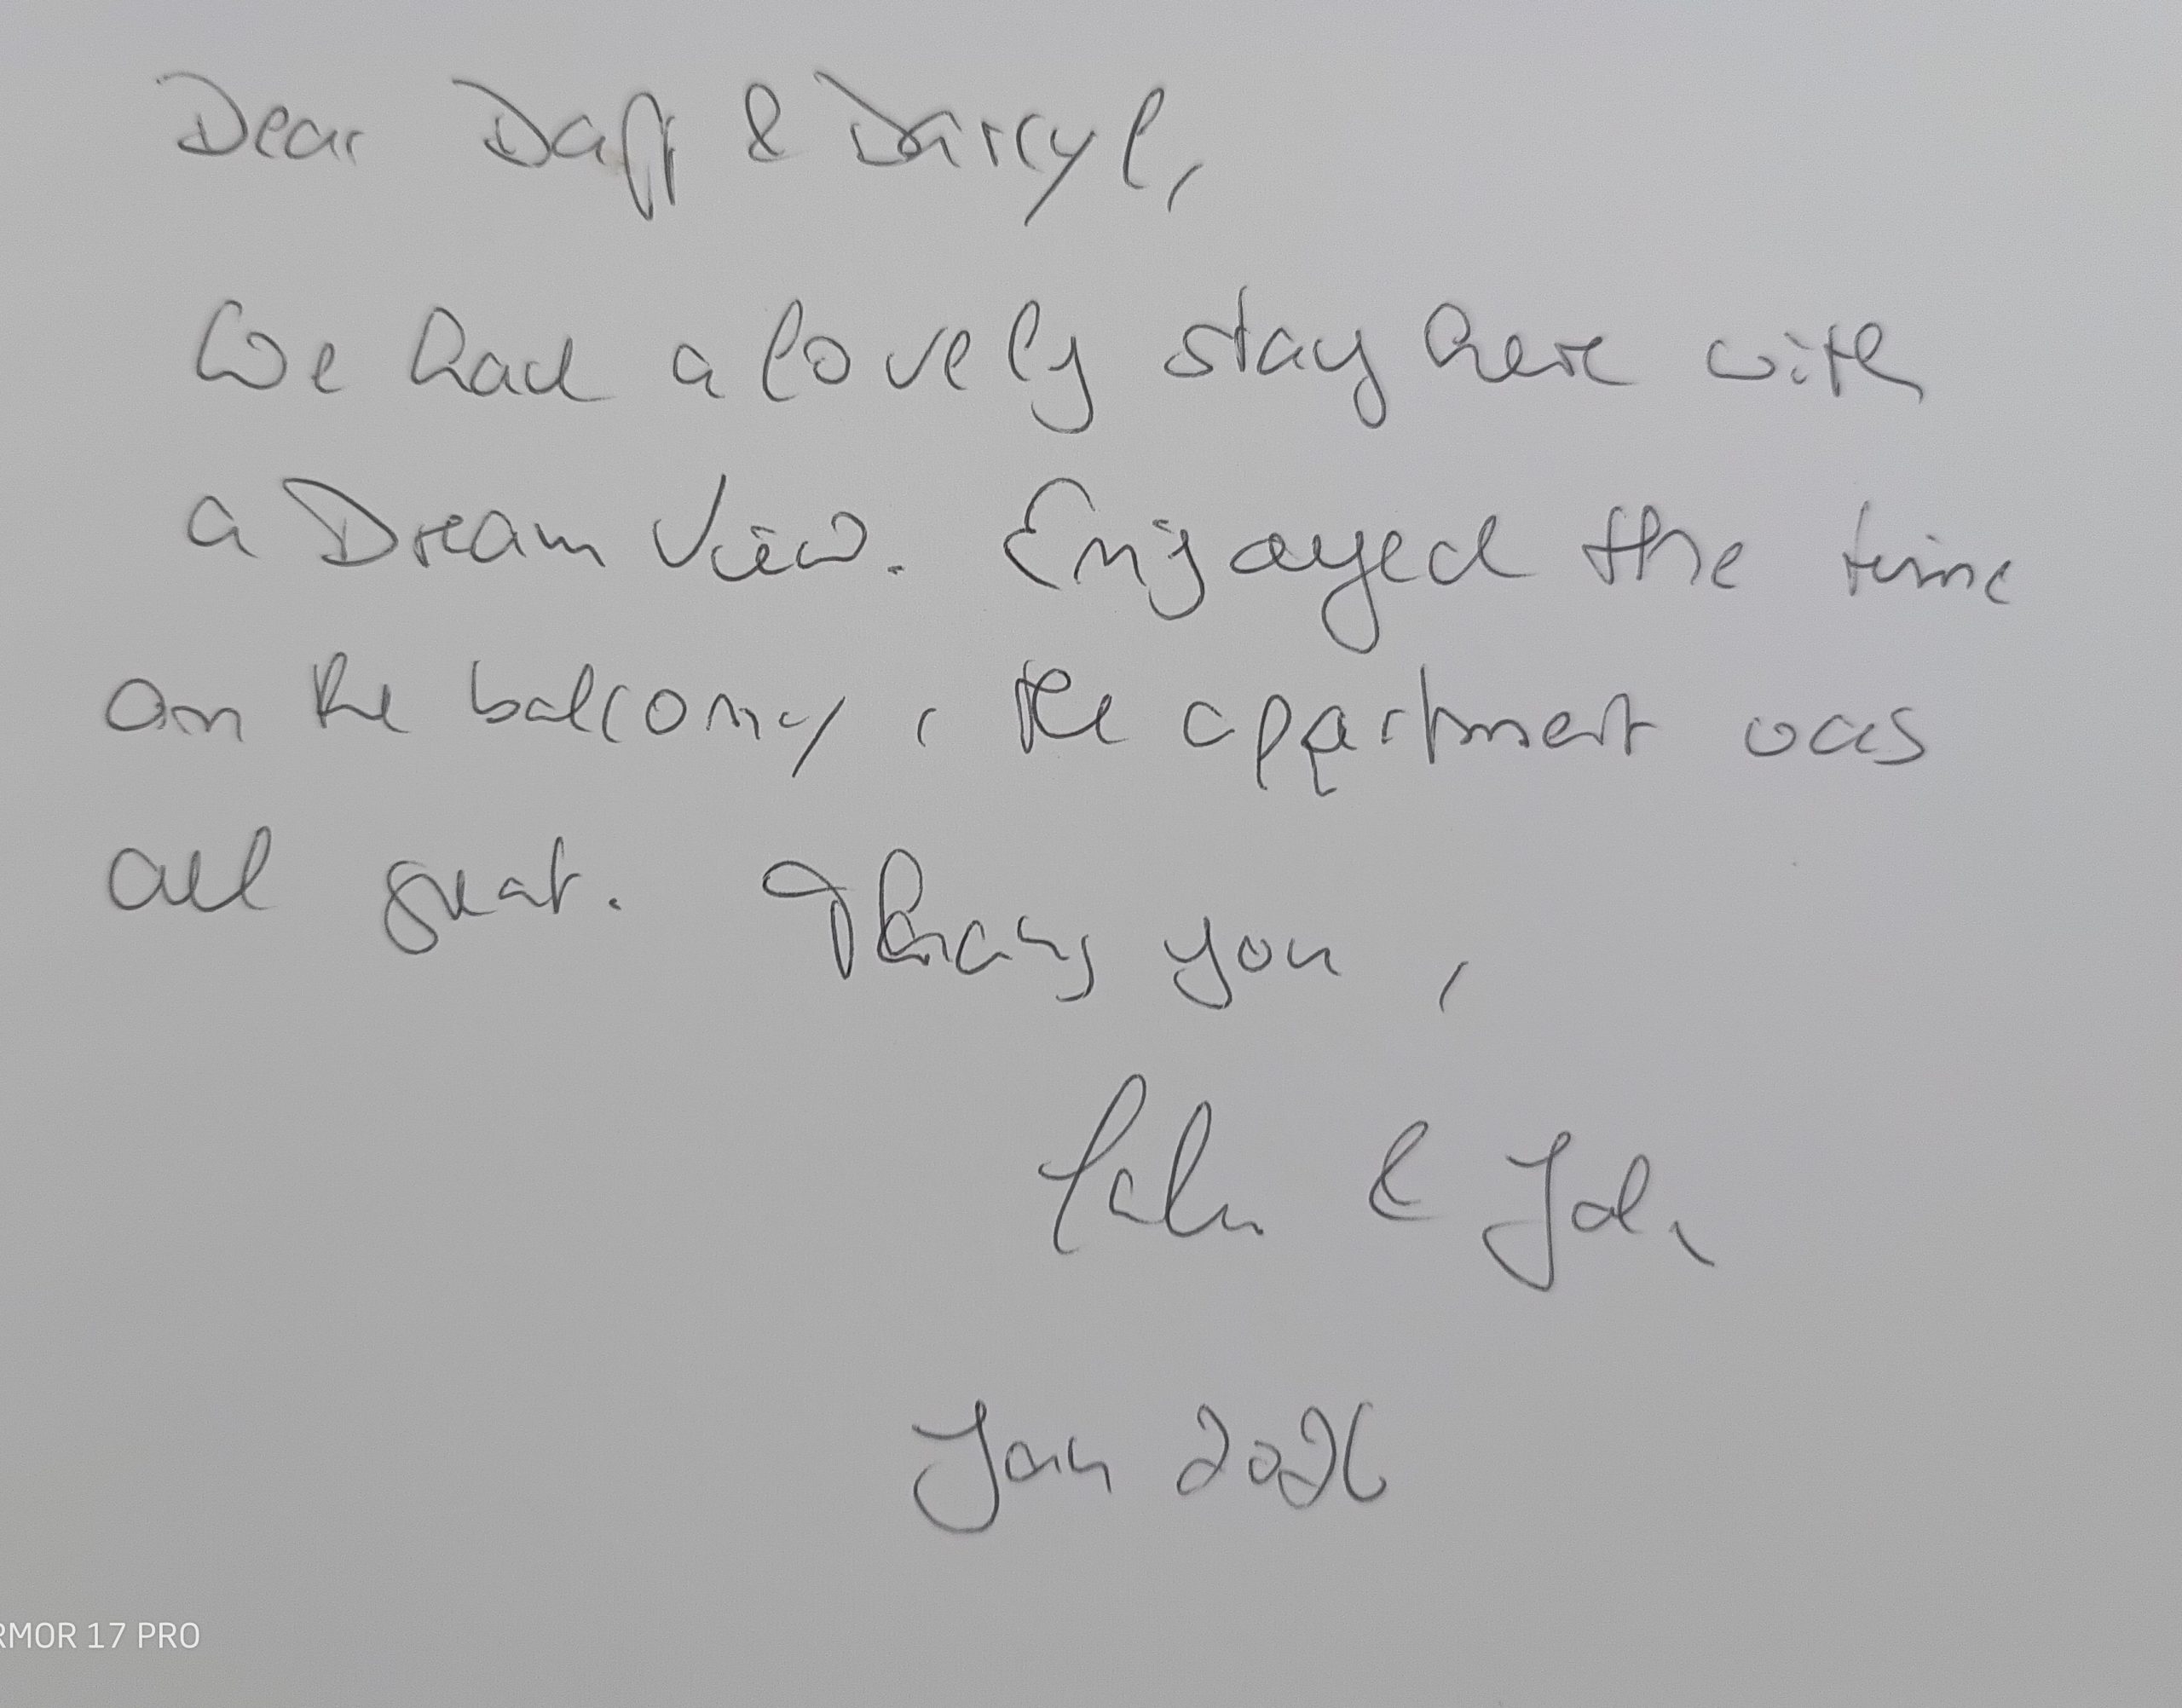 Dear Daff & Darryl,
We had a lovely stay here with
a Dream View. Enjoyed the time
on the balcony, the apartment was
all great. Thank you,
& 
Jan 2026
RMOR 17 PRO